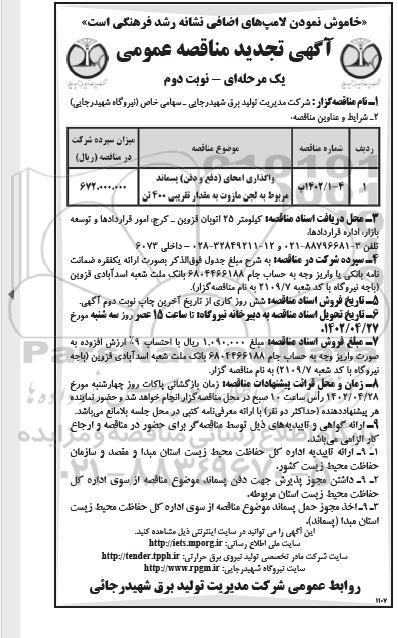 «خاموش نمودن لامپ‌های اضافی نشانه رشد فرهنگی است»
آگهی تجدید مناقصه عمومی
یک مرحله‌ای – نوبت دوم
۱ـ نام مناقصه‌گزار: شرکت مدیریت تولید برق شهیدرجایی ـ سهامی خاص (نیروگاه شهیدرجایی)
۲ـ شرایط و عناوین مناقصه.
ردیف شماره مناقصه موضوع مناقصه میزان سپرده شرکت در مناقصه (ریال)
۱ ۱۴۰۲/۱-۴پ واگذاری امحای (دفع و دفن) پسماند مربوط به لجن مازوت به مقدار تقریبی ۴۰۰ تن ۶۷۲.۰۰۰.۰۰۰
۳ـ محل دریافت اسناد مناقصه: کیلومتر ۲۵ اتوبان قزوین ـ کرج، امور قراردادها و توسعه
بازار، اداره قراردادها،
تلفن ۳-۸۸۷۹۶۶۸۱-۰۲۱ و ۱۲-۳۲۸۴۹۲۱۱-۰۲۸ – داخلی ۶۰۷۳
۴ـ سپرده شرکت در مناقصه: به شرح مبلغ جدول فوق‌الذکر بصورت ارائه یکفقره ضمانت
نامه بانکی یا واریز وجه به حساب جام ۶۸۰۴۴۶۶۱۸۸ بانک ملت شعبه اسدآبادی قزوین
(باجه نیروگاه با کد شعبه ۲۱۰۹/۷ به نام مناقصه‌گزار).
۵ـ تاریخ فروش اسناد مناقصه: شش روز کاری از تاریخ آخرین چاپ نوبت دوم آگهی.
۶ـ تاریخ تحویل اسناد مناقصه به دبیرخانه نیروگاه: تا ساعت ۱۵ عصر روز سه شنبه مورخ
۱۴۰۲/۰۴/۲۷.
۷ـ مبلغ فروش اسناد مناقصه: مبلغ ۱.۰۹۰.۰۰۰ ریال با احتساب ۹٪ ارزش افزوده به
صورت واریز وجه به حساب جام ۶۸۰۴۴۶۶۱۸۸ بانک ملت شعبه اسدآبادی قزوین (باجه
نیروگاه با کد شعبه ۲۱۰۹/۷) به نام مناقصه گزار.
۸ـ زمان و محل قرائت پیشنهادات مناقصه: زمان بازگشائی پاکات روز چهارشنبه مورخ
۱۴۰۲/۰۴/۲۸ رأس ساعت ۱۰ صبح در محل مناقصه‌گزار انجام خواهد شد و حضور نماینده
هر پیشنهاددهنده (حداکثر دو نفر) با ارائه معرفی‌نامه کتبی در محل جلسه بلامانع می‌باشد.
۹ـ ارائه گواهی و تاییدیه‌های ذیل توسط مناقصه‌گر برای حضور در مناقصه و ارجاع
کار الزامی می‌باشد.
۹-۱ـ ارائه تاییدیه اداره کل حفاظت محیط زیست استان مبدا و مقصد و سازمان
حفاظت محیط زیست کشور.
۹-۲ـ داشتن مجوز پذیرش جهت دفن پسماند موضوع مناقصه از سوی اداره کل
حفاظت محیط زیست استان مربوطه.
۹-۳ـ اخذ مجوز حمل پسماند موضوع مناقصه از سوی اداره کل حفاظت محیط زیست
استان مبدا (پسماند).
این آگهی را می توانید در سایت اینترنتی ذیل مشاهده کنید.
سایت ملی اطلاع رسانی: http://iets.mporg.ir
سایت شرکت مادر تخصصی تولید نیروی برق حرارتی: http://tender.tpph.ir
سایت نیروگاه شهیدرجایی: http://www.rpgm.ir
روابط عمومی شرکت مدیریت تولید برق شهیدرجائی
۱۱۰۷
۰۲۱-۸۸۳۴۹۶۷۰-۵